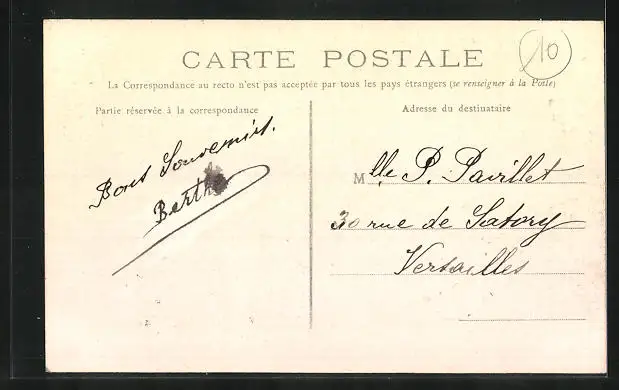 CARTE POSTALE
10
La Correspondance au recto n'est pas acceptée par tous les pays étrangers (se renseigner à la Poste)
Partie réservée à la correspondance
Adresse du destinataire
Bons Souvenirs.
Berthe
Mlle P. Pavillet
30 rue de Satory
Versailles
2